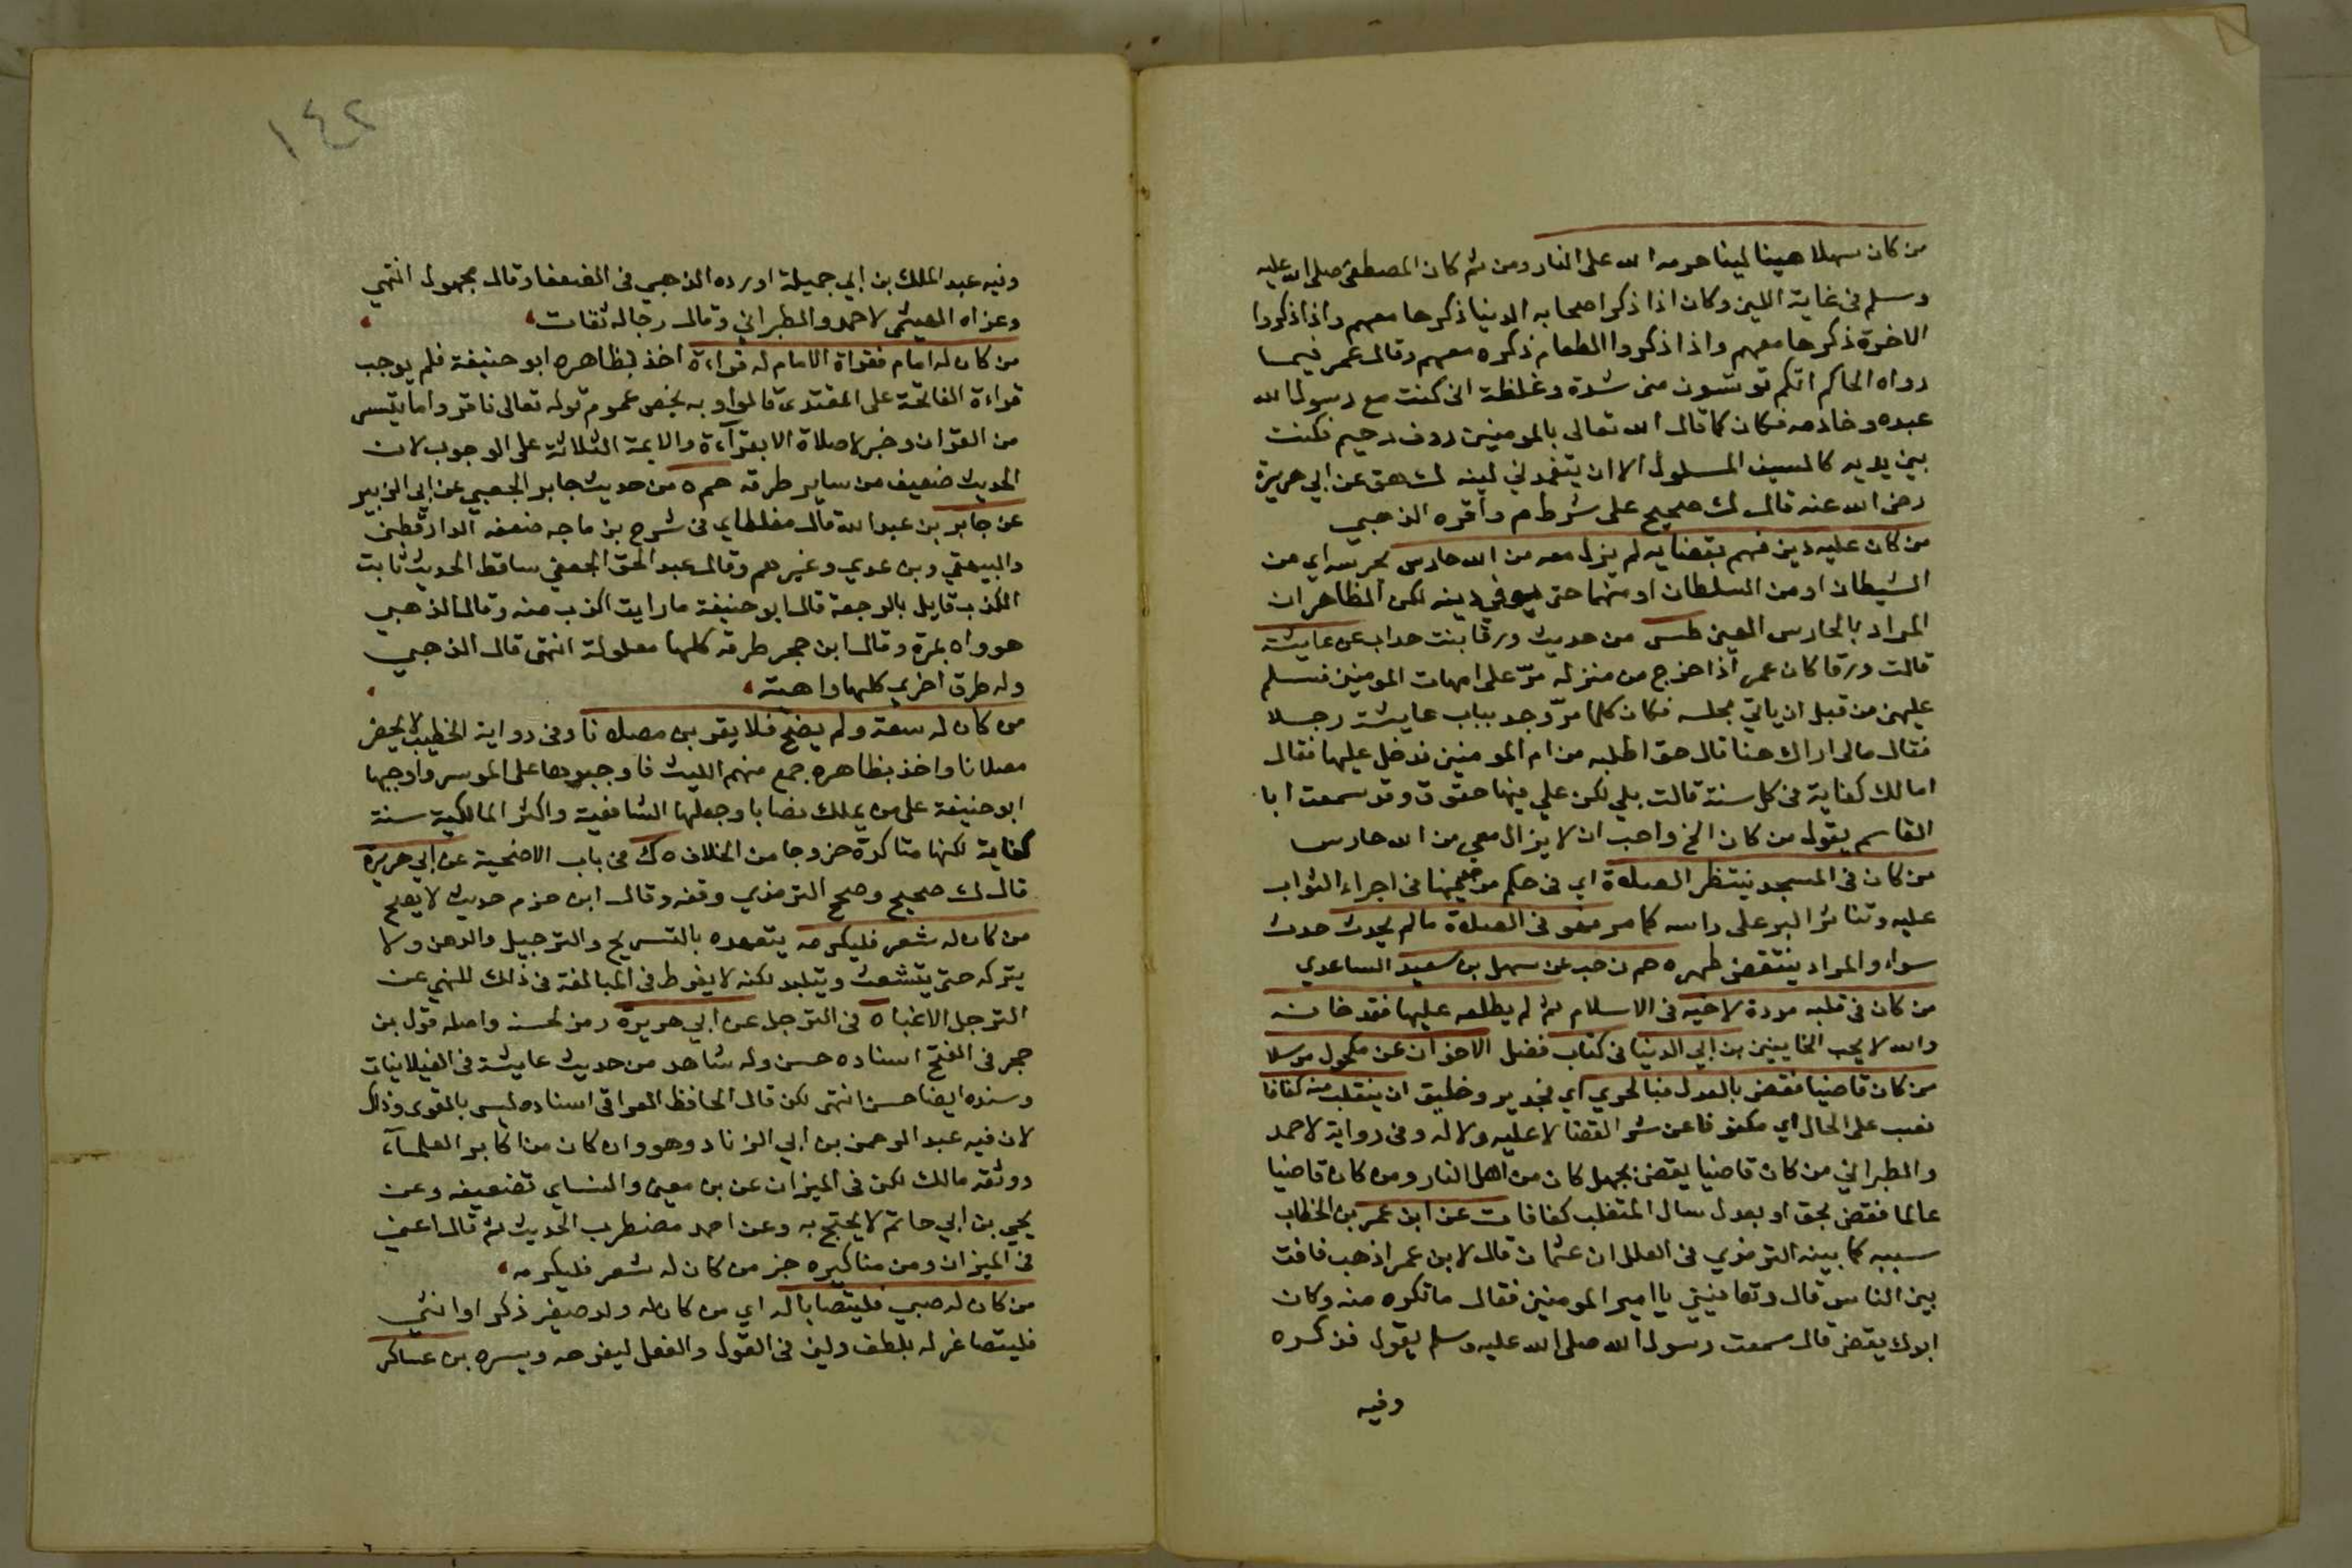 من كان سهلا هينا لينا حرمه الله على النار ومن ثم كان المصطفى صلى الله عليه
وسلم فى غاية اللين وكان اذا ذكر اصحابه الدنيا ذكرها معهم واذا ذكروا
الاخرة ذكرها معهم واذا ذكروا الطعام ذكره معهم وقال عمر فيما
رواه الحاكم انكم تونسون منى شدة وغلظة انى كنت مع رسول الله
عبده وخادمه فكان كما قال الله تعالى بالمومنين روف رحيم فكنت
بين يديه كالسيف المسلول الا ان يتغمدني لينه ك هق عن ابي هريرة
رضى الله عنه قال ك صحيح على شرط م واقره الذهبي
من كان عليه دين فهم بقضايه لم يزل معه من الله حارس يحرسه اي من
الشيطان او من السلطان او منهما حتى يوفي دينه لكن الظاهر ان
المراد بالحارس المعين طس من حديث ورقا بنت هداب عن عايشة
قالت ورقا كان عمر اذا خرج من منزله مرّ على امهات المومنين فسلم
عليهن من قبل ان ياتي مجلسه فكان كلما مرّ وجد بباب عايشة رجلا
فقال مالى اراك هنا قال حق اطلبه من ام المومنين فدخل عليها فقال
امالك كفاية فى كل سنة قالت بلي لكن علي فيها حقوق وقد سمعت ابا
القاسم يقول من كان الخ واحب ان لا يزال معي من الله حارس
من كان فى المسجد ينتظر الصلاة اي فى حكم من فيها فى اجراء الثواب
عليه وتناثر البر على راسه كما مر فهو فى الصلاة ما لم يحدث حدث
سواء والمراد ينتقض طهره حم ن حب عن سهل بن سعيد الساعدي
من كان فى قلبه مودة لاخيه فى الاسلام ثم لم يطلعه عليها فقد خانه
والله لا يحب الخاينين بن ابي الدنيا فى كتاب فضل الاخوان عن مكحول مرسلا
من كان قاضيا فقضى بالعدل فبالحري اي فجدير وخليق ان ينقلب منه كفافا
نصب على الحال اي مكفوفا عن شر القضا لا عليه ولا له وفى رواية لاحمد
والطبراني من كان قاضيا يقضى بجهل كان من اهل النار ومن كان قاضيا
عالما فقضى بحق او بعدل سال المتقلب كفافا ت عن ابن عمر بن الخطاب
سببه كما بينه الترمذي فى العلل ان عثمان قال لابن عمر اذهب فاقض
بين الناس قال وتعافيني يا امير المومنين فقال ما تكره منه وكان
ابوك يقضى قال سمعت رسول الله صلى الله عليه وسلم يقول فذكره
وفيه
١٤٢
وفيه عبد الملك بن ابي جميلة اورده الذهبي فى الضعفا وقال مجهول انتهي
وعزاه الهيثمى لاحمد والطبراني وقال رجاله ثقات
من كان له امام فقراة الامام له قراءة اخذ بظاهره ابو حنيفة فلم يوجب
قراءة الفاتحة على المقتدى قالوا وبه يخص عموم قوله تعالى فاقروا ما تيسر
من القران وخبر لا صلاة الا بقراءة والايمة الثلاثة على الوجوب لان
الحديث ضعيف من ساير طرقه حم ه من حديث جابر الجعفي عن ابي الزبير
عن جابر بن عبد الله قال مغلطاي فى شرح بن ماجه ضعفه الدارقطنى
والبيهقي وبن عدي وغيرهم وقال عبد الحق الجعفي ساقط الحديث ثابت
الكذب قايل بالرجعة قال ابو حنيفة ما رايت اكذب منه وقال الذهبي
هو واه بمرة وقال ابن حجر طرقه كلها معلولة انتهى قال الذهبي
وله طرق اخري كلها واهية
من كان له سعة ولم يضح فلا يقربن مصلانا وفى رواية الخطيب لا يحضر
مصلانا واخذ بظاهره جمع منهم الليث فاوجبوها على الموسر واوجبها
ابو حنيفة على من يملك نصابا وجعلها الشافعية واكثر المالكية سنة
كفاية لكنها متاكدة خروجا من الخلاف ه ك فى باب الاضحية عن ابي هريرة
قال ك صحيح وصحح الترمذي وقفه وقال ابن حزم حديث لا يصح
من كان له شعر فليكرمه يتعهده بالتسريح والترجيل والدهن ولا
يتركه حتى يتشعث ويتلبد لكنه لا يفرط فى المبالغة فى ذلك للنهي عن
الترجل الا غبا ه فى الترجل عن ابي هريرة رمز لحسنه واصله قول بن
حجر فى الفتح اسناده حسن وله شاهد من حديث عايشة فى الغيلانيات
وسنده ايضا حسن انتهى لكن قال الحافظ العراقى اسناده ليس بالقوى وذلك
لان فيه عبد الرحمن بن ابي الزناد وهو وان كان من اكابر العلماء
ووثقه مالك لكن فى الميزان عن بن معين والنساي تضعيفه وعن
يحيي بن ابي حاتم لا يحتج به وعن احمد مضطرب الحديث ثم قال اعنى
فى الميزان ومن مناكيره خبر من كان له شعر فليكرمه
من كان له صبي فليتصابا له اي من كان له ولد صغير ذكر او انثي
فليتصاغر له بلطف ولين فى القول والفعل ليفرحه ويسره بن عساكر